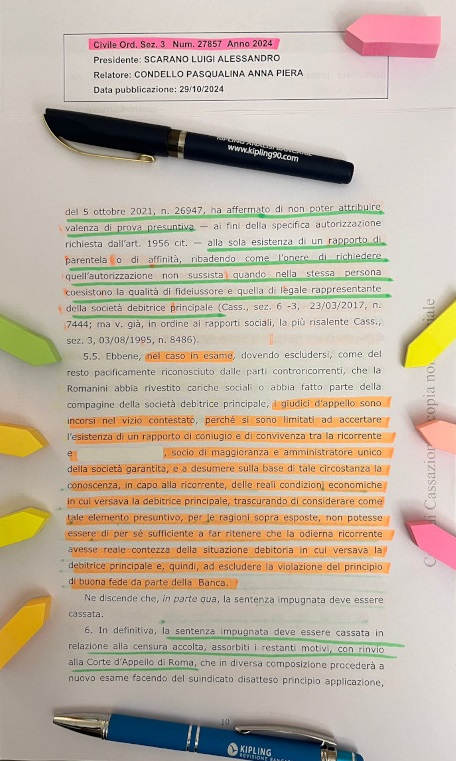 Civile Ord. Sez. 3 Num. 27857 Anno 2024
Presidente: SCARANO LUIGI ALESSANDRO
Relatore: CONDELLO PASQUALINA ANNA PIERA
Data pubblicazione: 29/10/2024
www.kipling90.com
del 5 ottobre 2021, n. 26947, ha affermato di non poter attribuire
valenza di prova presuntiva — ai fini della specifica autorizzazione
richiesta dall'art. 1956 cit. — alla sola esistenza di un rapporto di
parentela o di affinità, ribadendo come l'onere di richiedere
quell'autorizzazione non sussista quando nella stessa persona
coesistono la qualità di fideiussore e quella di legale rappresentante
della società debitrice principale (Cass., sez. 6 -3, 23/03/2017, n.
7444; ma v. già, in ordine ai rapporti sociali, la più risalente Cass.,
sez. 3, 03/08/1995, n. 8486).
5.5. Ebbene, nel caso in esame, dovendo escludersi, come del
resto pacificamente riconosciuto dalle parti controricorrenti, che la
Romanini abbia rivestito cariche sociali o abbia fatto parte della
compagine della società debitrice principale, i giudici d'appello sono
incorsi nel vizio contestato, perché si sono limitati ad accertare
l'esistenza di un rapporto di coniugio e di convivenza tra la ricorrente
e , socio di maggioranza e amministratore unico
della società garantita, e a desumere sulla base di tale circostanza la
conoscenza, in capo alla ricorrente, delle reali condizioni economiche
in cui versava la debitrice principale, trascurando di considerare come
tale elemento presuntivo, per le ragioni sopra esposte, non potesse
essere di per sé sufficiente a far ritenere che la odierna ricorrente
avesse reale contezza della situazione debitoria in cui versava la
debitrice principale e, quindi, ad escludere la violazione del principio
di buona fede da parte della Banca.
Ne discende che, in parte qua, la sentenza impugnata deve essere
cassata.
6. In definitiva, la sentenza impugnata deve essere cassata in
relazione alla censura accolta, assorbiti i restanti motivi, con rinvio
alla Corte d'Appello di Roma, che in diversa composizione procederà a
nuovo esame facendo del suindicato disatteso principio applicazione,
10
KIPLING
Cassazione copia no